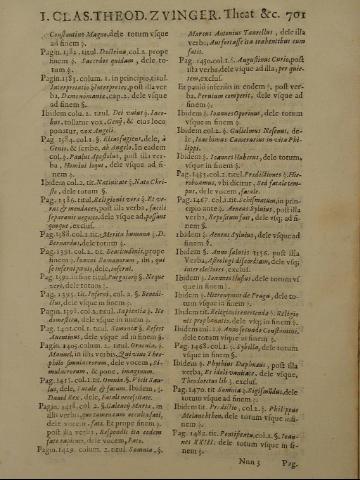 I. CLAS. THEOD. ZVINGER. Theat &c. 701
Constantino Magno, dele totum vsque
ad finem §.
Pagin. 1382. titul. Doctrina, col. 2. prope
finem §. Sacerdos quidam, dele to-
tum §.
Pagin. 1383. colum. 1. in principio, titul.
Interpretatio Interpretes, post illa ver
ba, Demonomantia, cap. 2. dele vsque
ad finem §.
Ibidem colum. 2. titul. Dei vultus §. Iaco-
bus, tollatur vox, Genij, & eius loco
ponatur, vox Angeli.
Pag. 1384. col. 1. §. dele, à
Genio, & scribe, ab Angelo. In eadem
col. §. Paulus Apostolus, post illa ver-
ba, Humi dele vsque ad fi-
nem §.
Ibidem col. 2. tit. Natiuitate §. Nato Chri-
sto, dele totum §.
Pag. 1386. titul. Religionis vera §. Et ve-
ras & mendaces, post illa verba, facile
separari nequeat, dele vsque ad, possunt
quoque, exclus.
Pag. 1388. col. 2. tit. Merita humana §. D.
Bernardus, dele totum §.
Pag. 1391. col. 2. tit. prope
finem §. Ioannes dele, qui
se inferni pœnis, dele, inferni.
Pag. 1392. in fine titul. Purgatorij §. Neque
veri, dele totum §.
Pag. 1395. tit. Inferni, col. 2. §. Benedi-
ctus, dele vsque ad finem §.
Pagin. 1398. col. 2. titul. Sapientia §. Ne
domestica, dele vsque ad finem §.
Pag. 1401. col. 1. titul. Somnia §. Refert
Auentinus, dele vsque ad in finem §.
Pagin. 1405. colum. 2. titul. Oraculo, §.
Manuel, in illis verbis, Qui vitae Theo-
philo dele vocem, Si-
mulacrorum, & pone, imaginum.
Pag. 1413. col. 1. tit. Omina §. Vbi Sau-
lus, dele, Fatale & fatum. Ibidem, §.
Dauid Rex, dele, Fatali necessitate.
Pagin. 1418. col. 2. §. Galeotus Martius, in
illis verbis,
dele vocem, fata. Et prope finem §.
post illa verba, Respondit ita eodem
fato dele vocem, Fato.
Pagin. 1419. colum. 2. §.
Marcus Antonius Taurellus, dele illa
verba, Aut fortasse ita trahentibus eum
fatis.
Pag. 1450. col. 1. §. Augustinus Curio, post
illa verba, dele vsque ad illa, per quie-
tem, exclus.
Et paulò inferiùs in eodem §. post ver-
ba, Peruium comperit, dele vsque ad
finem §.
Ibidem §. Ioannes Oporinus, dele totum
vsque ad finem §.
Ibidem col. 2. §. Gulielmus Nesenus, de-
le, Ioachimus Camerarius in vita Phi-
lippi.
Ibidem §. Ioannes Huberus, dele totum,
vsque in finem §.
Pag. 1453. col. 2. titul. Praedictiones §. Hie-
robaamus, vbi dicitur, Sed facile tem-
pus, dele vocem, facile.
Pag. 1467. col. 2. tit. Schismaticum, in prin-
cipio ante §. Aeneas Syluius, post illa
verba, Repulsum fuit, dele vsq; ad fi-
nem §.
Ibidem §. Aeneas Syluius, dele vsque ad
finem §.
Ibidem §. Anno salutis 1556. post illa
Verba, Astrologi discordiam, dele vsq;
inter doctores, exclus.
Ibidem §. Ioannes Hussus, dele totum vs-
que in finem §.
Ibidem §. Hieronymus de Praga, dele to-
tum, vsque in finem §.
Ibidem tit. Religionis retentenda §. Religio
nis propaganda, dele vsq; in finem §.
Ibidem col. 2. §. Anno secundo Constantini,
dele totum vsque in finem §.
Pag. 1468. col. 1. §. Sybilla, dele totum
vsque in finem §.
Ibidem §. Physicus Daphnaeus, post illa
verba, Et tibi vanitate, dele vsque,
Theodoretus lib. 3. exclus.
Pag. 1470. tit. Somnia §. Sigismundus, dele
totum vsque in finem §.
Ibidem tit. Praedictio, col. 2. §. Philippus
Melanchthon, dele totum vsque in fi-
nem §.
Pag. 1482. tit. Pontificatu, col. 1. §. Ioan-
nes XXIII. dele totum vsque in fi-
nem §.
Nnn 3 Pag.